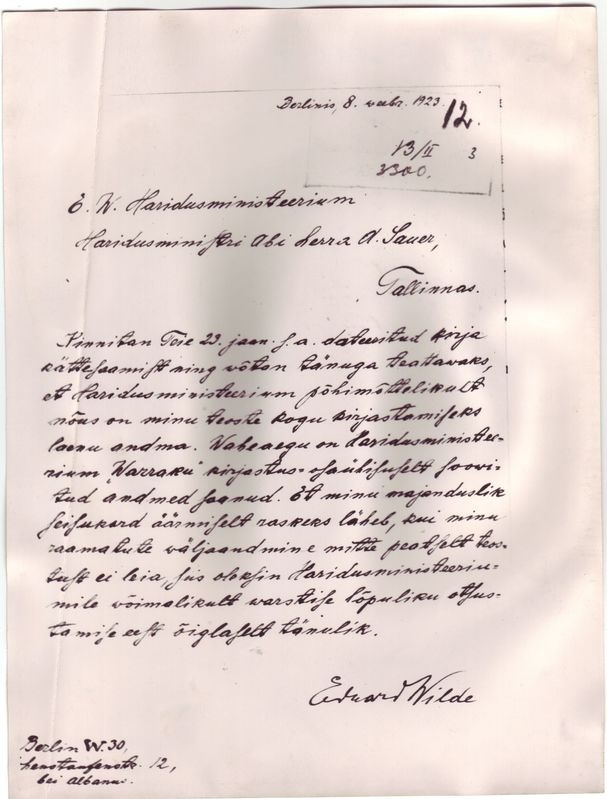 Berlinis, 8. veebr. 1923.
12.
13/II 3
3300.
E. W. Haridusministeerium
Haridusministri Abi herra A. Sauer,
Tallinnas.
Kinnitan Teie 29. jaan. s. a. dateeritud kirja
kättesaamist ning wõtan tänuga teatawaks,
et Haridusministeerium põhimõttelikult
nõus on minu teoste kogu kirjastamiseks
laenu andma. Waheaegu on Haridusministee-
rium „Warraku" kirjastus-osaühisuselt soovi-
tud andmed saanud. Et minu majanduslik
seisukord äärmiselt raskeks läheb, kui minu
raamatute wäljaandmine mitte peatselt teos-
tust ei leia, siis oleksin Haridusministeeriu-
mile wõimalikult warstise lõpuliku otsus-
tamise eest õiglaselt tänulik.
Eduard Wilde
Berlin W. 30,
12,
bei Albanus.